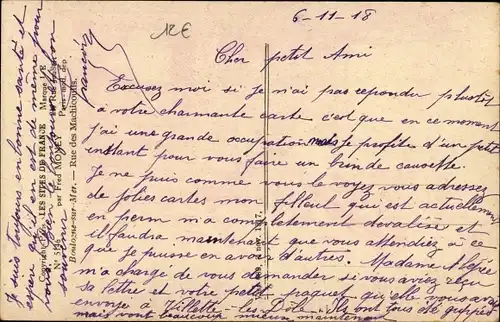 12E
6-11-18
Cher petit Ami
Excusez moi si je n'ai pas repondu plustôt
à votre charmante carte c'est que en ce moment
j'ai une grande occupation mais je profite d'un petit
instant pour vous faire un brin de causette.
Je ne puis comme vous le voyez vous adresser
de jolies cartes mon filleul qui est actuellement
en perm m'a complètement dévalisée et
il faudra maintenant que vous attendiez à ce
que je puisse en avoir d'autres. Madame
m'a chargé de vous demander si vous aviez reçu
sa lettre et votre petit paquet qu'elle vous avait
envoyé à Villette-les-Dôle. Ils ont tous été grippés
mais vont beaucoup mieux maintenant
Je suis toujours en bonne santé et
espère qu'il en est de même pour
vous
LES SITES DE FRANCE
par Fred MONEY
Boulogne-sur-Mer. — Rue des Machicoulis.